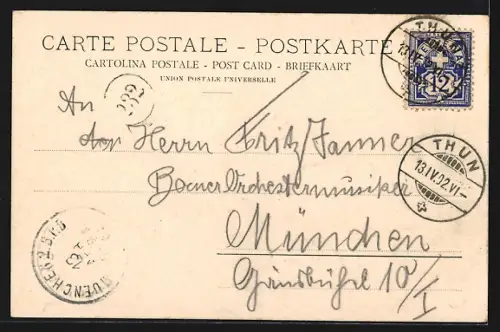 CARTE POSTALE - POSTKARTE
CARTOLINA POSTALE - POST CARD - BRIEFKAART
UNION POSTALE UNIVERSELLE
12
THUN
13.IV.02.VI-
An
Herrn Fritz Janner
Orchestermusiker
München
10/I
MUENCHEN